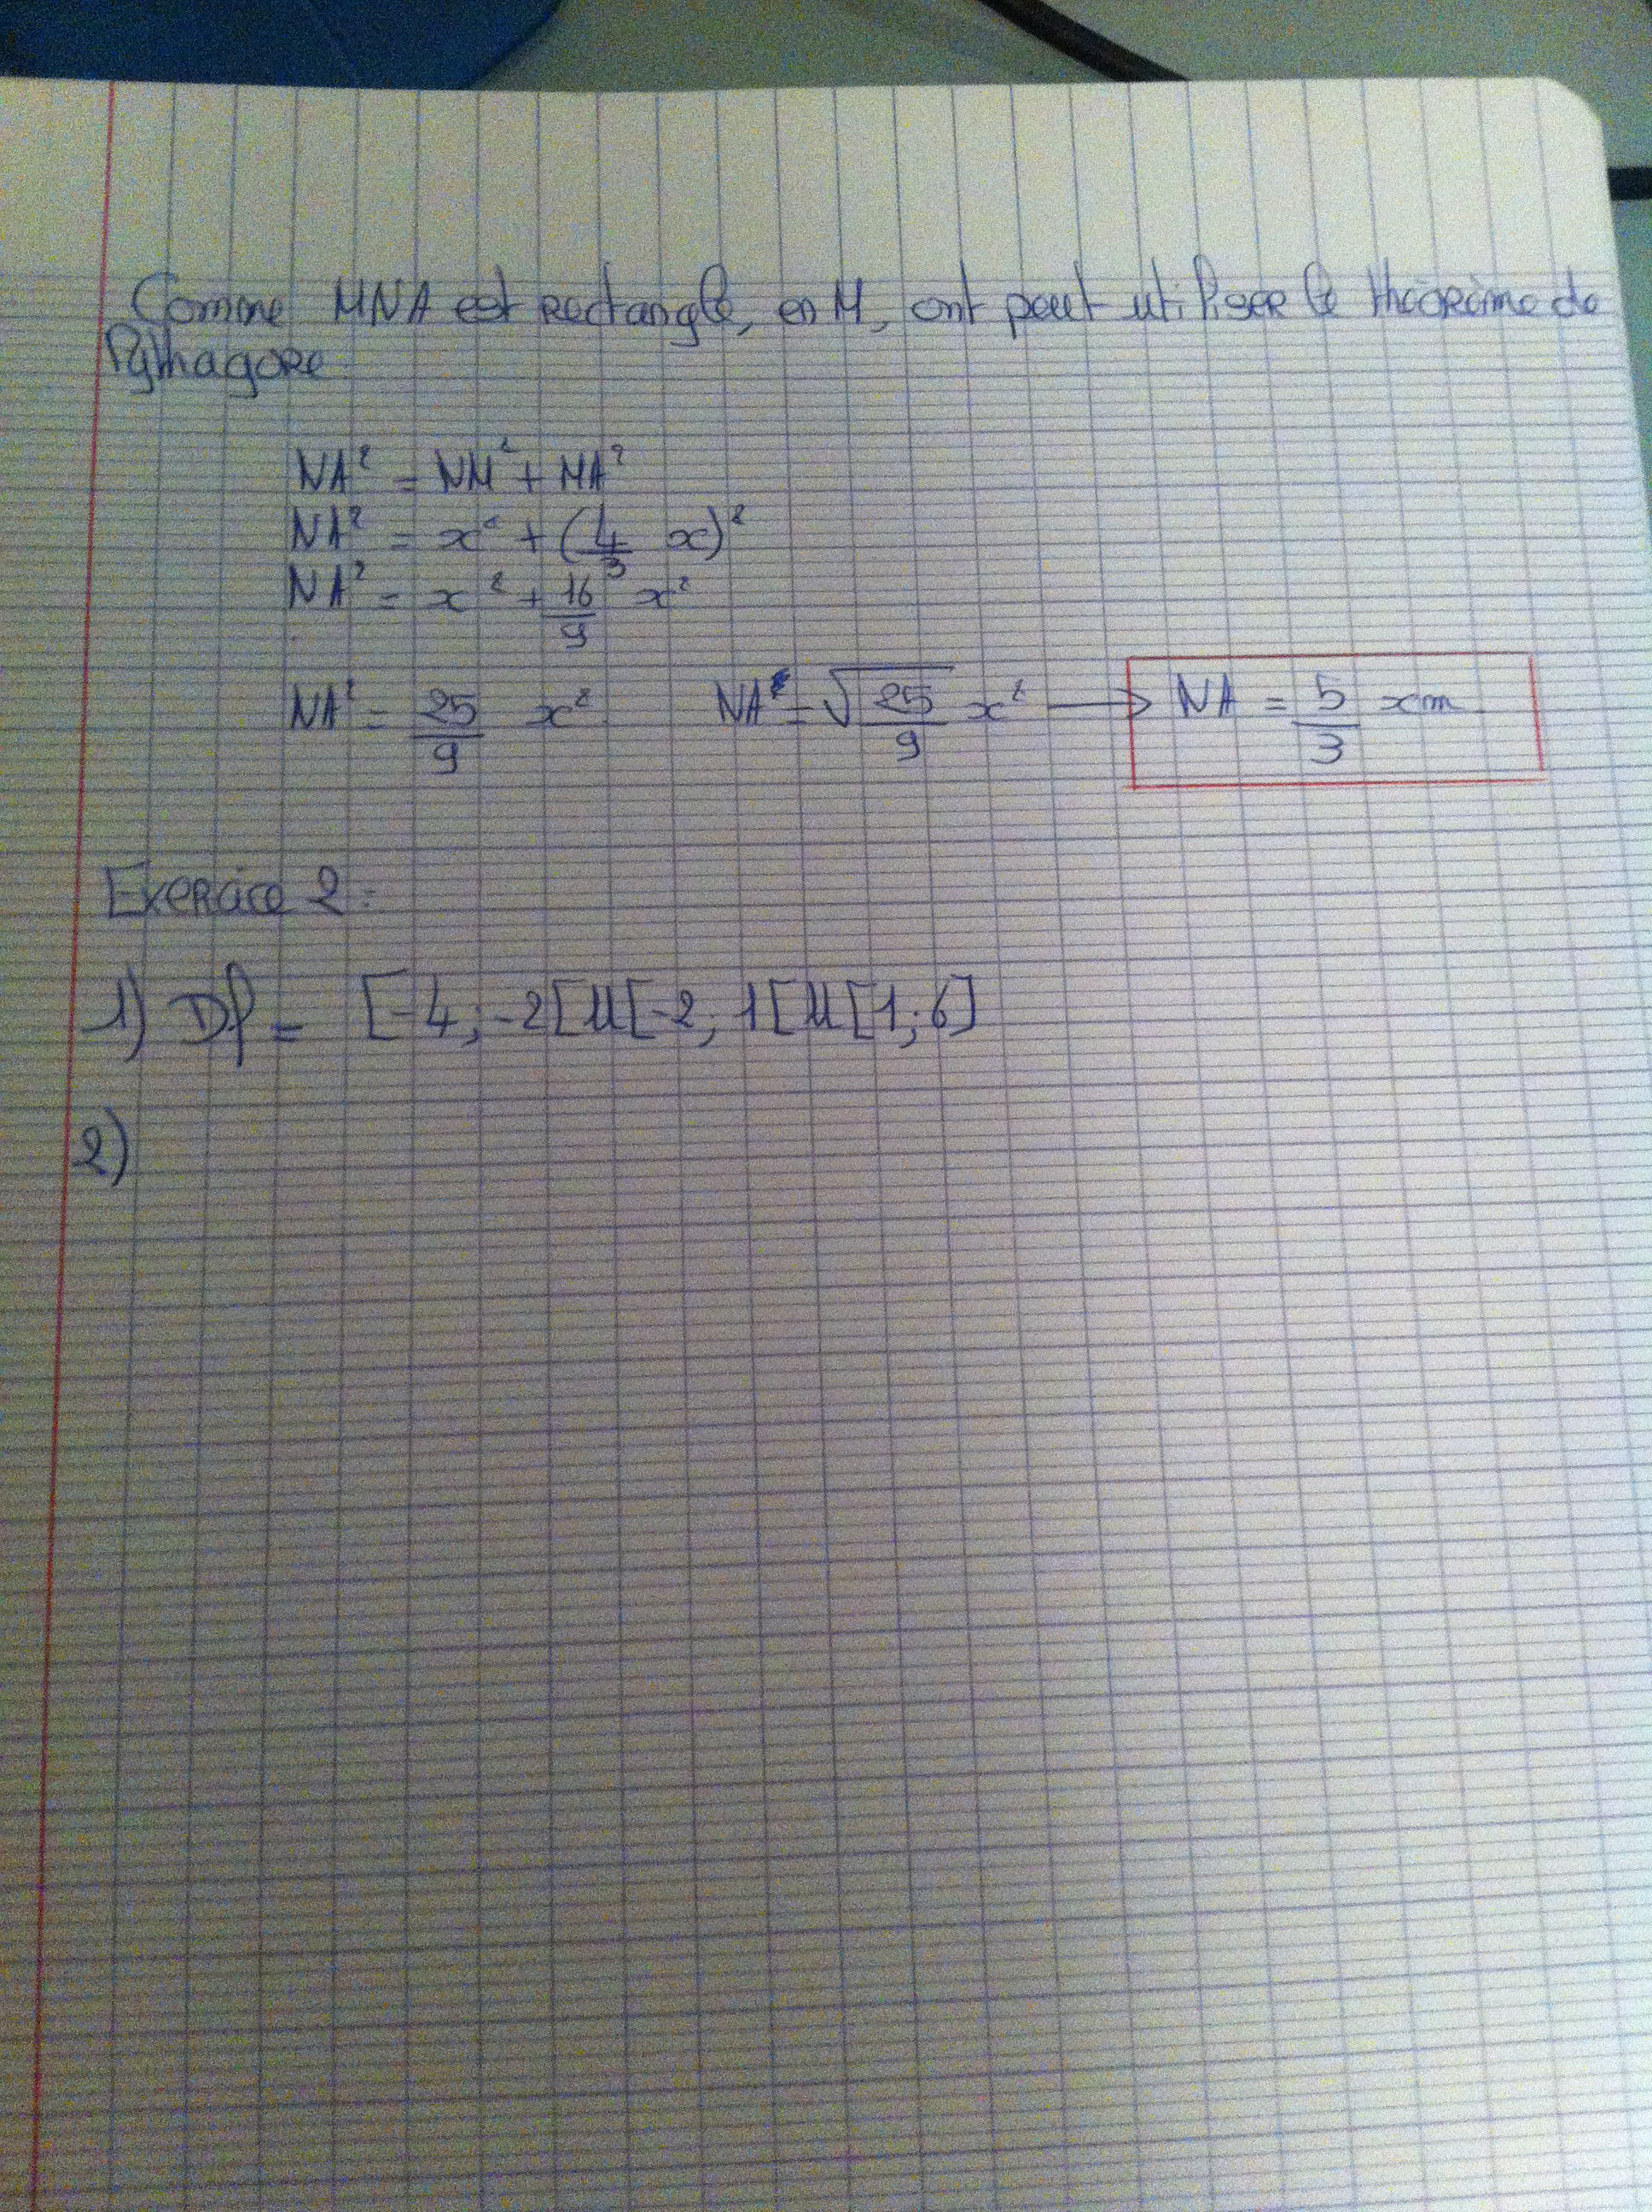 Comme MNA est rectangle, en M, ont peut utiliser le théorème de
Pythagore
NA² = NM² + MA²
NA² = x² + (4/3 x)²
NA² = x² + 16/9 x²
NA² = 25/9 x² NA = √25/9 x² → NA = 5/3 xm
Exercice 2 :
1) Df = [-4; -2[U[-2; 1[U[1; 6]
2)